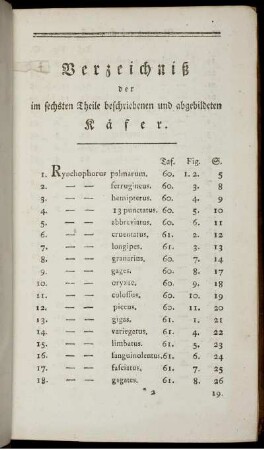 Verzeichniß
der
im sechsten Theile beschriebenen und abgebildeten
Käfer.
Taf. Fig. S.
1. Rynchophorus palmarum. 60. 1. 2. 5
2. — — ferrugineus. 60. 3. 8
3. — — hemipterus. 60. 4. 9
4. — — 13 punctatus. 60. 5. 10
5. — — abbreviatus. 60. 6. 11
6. — — cruentatus. 61. 2. 12
7. — — longipes. 61. 3. 13
8. — — granarius. 60. 7. 14
9. — — gages. 60. 8. 17
10. — — oryzae. 60. 9. 18
11. — — colossus. 61. 10. 19
12. — — piceus. 60. 11. 20
13. — — gigas. 61. 1. 21
14. — — variegatus. 61. 4. 22
15. — — limbatus. 61. 5. 23
16. — — sanguinolentus. 61. 6. 24
17. — — fasciatus. 61. 7. 25
18. — — gagates. 61. 8. 26
* 2 19.